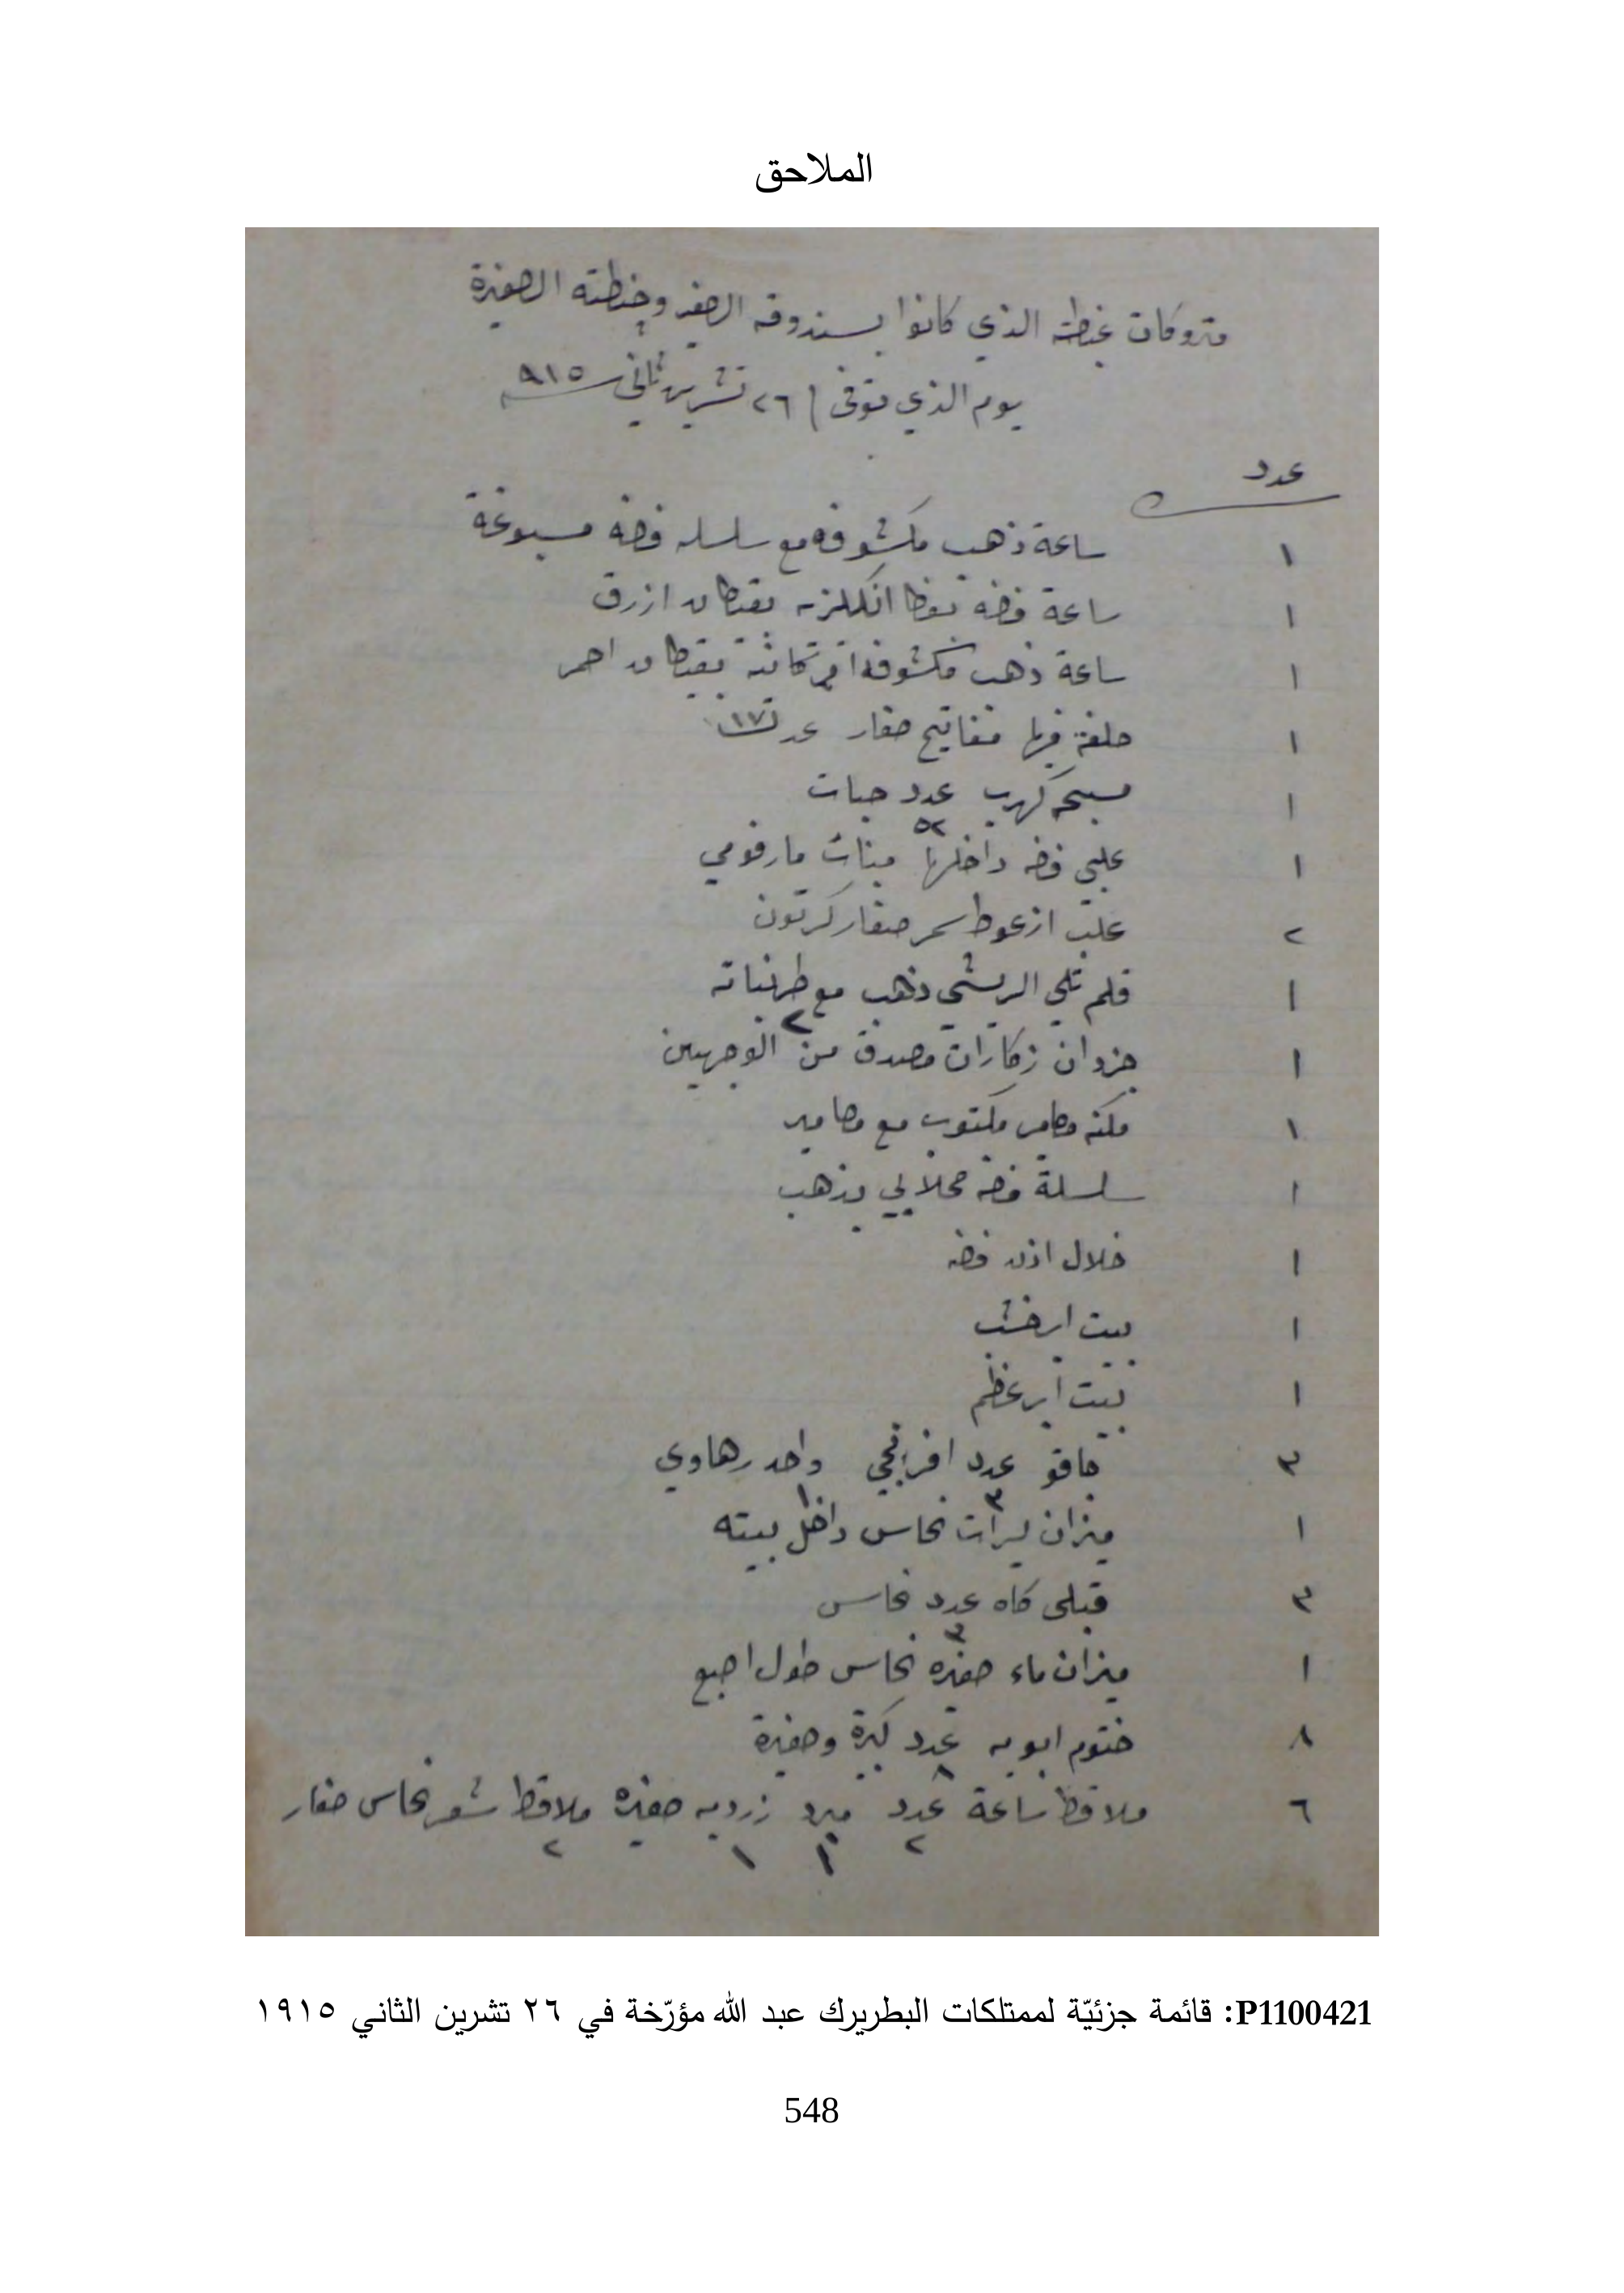 الملاحق
متروكات غبطته الذي كانوا بسندوقه الصغير وجنطته الصغيرة
يوم الذي توفى / ٢٦ تشرين ثاني سنة ٩١٥
عدد
١ ساعة ذهب مكشوفه مع سلسله فضة مسبوغة
١ ساعة فضه بغطا انكليزيه بقيطان ازرق
١ ساعة ذهب مكشوفة بقيطان احمر
١ حلقة فيها مفاتيح صغار عدد ١٧
١ مسبحه كهرب عدد حبات ٥٢
١ علبي فضه داخلها
٢ علب صغار كرتون
١ قلم الريشي ذهب مع
١ جزدان زكارات مصدف من الوجهين ٢
١ مكتوب مع
١ سلسلة فضه بذهب
١ خلال اذن فضه
١ بيت ابر خشب
١ بيت ابر عظم
٣ جاقو عدد ٣ افرنجي واحد ١ رهاوي
١ ميزان ليرات نحاس داخل بيته
٣ قبلي كاه عدد ٣ نحاس
١ ميزان ماء صغيره نحاس طول اصبع
٨ ختوم ابويه عدد ٨ كبيرة وصغيرة
٦ ملاقط ساعة عدد ٢ مبرد ١ زرديه ١ صغيره ملاقط شعر نحاس صغار ٢
P1100421: قائمة جزئيّة لممتلكات البطريرك عبد الله مؤرّخة في ٢٦ تشرين الثاني ١٩١٥
548